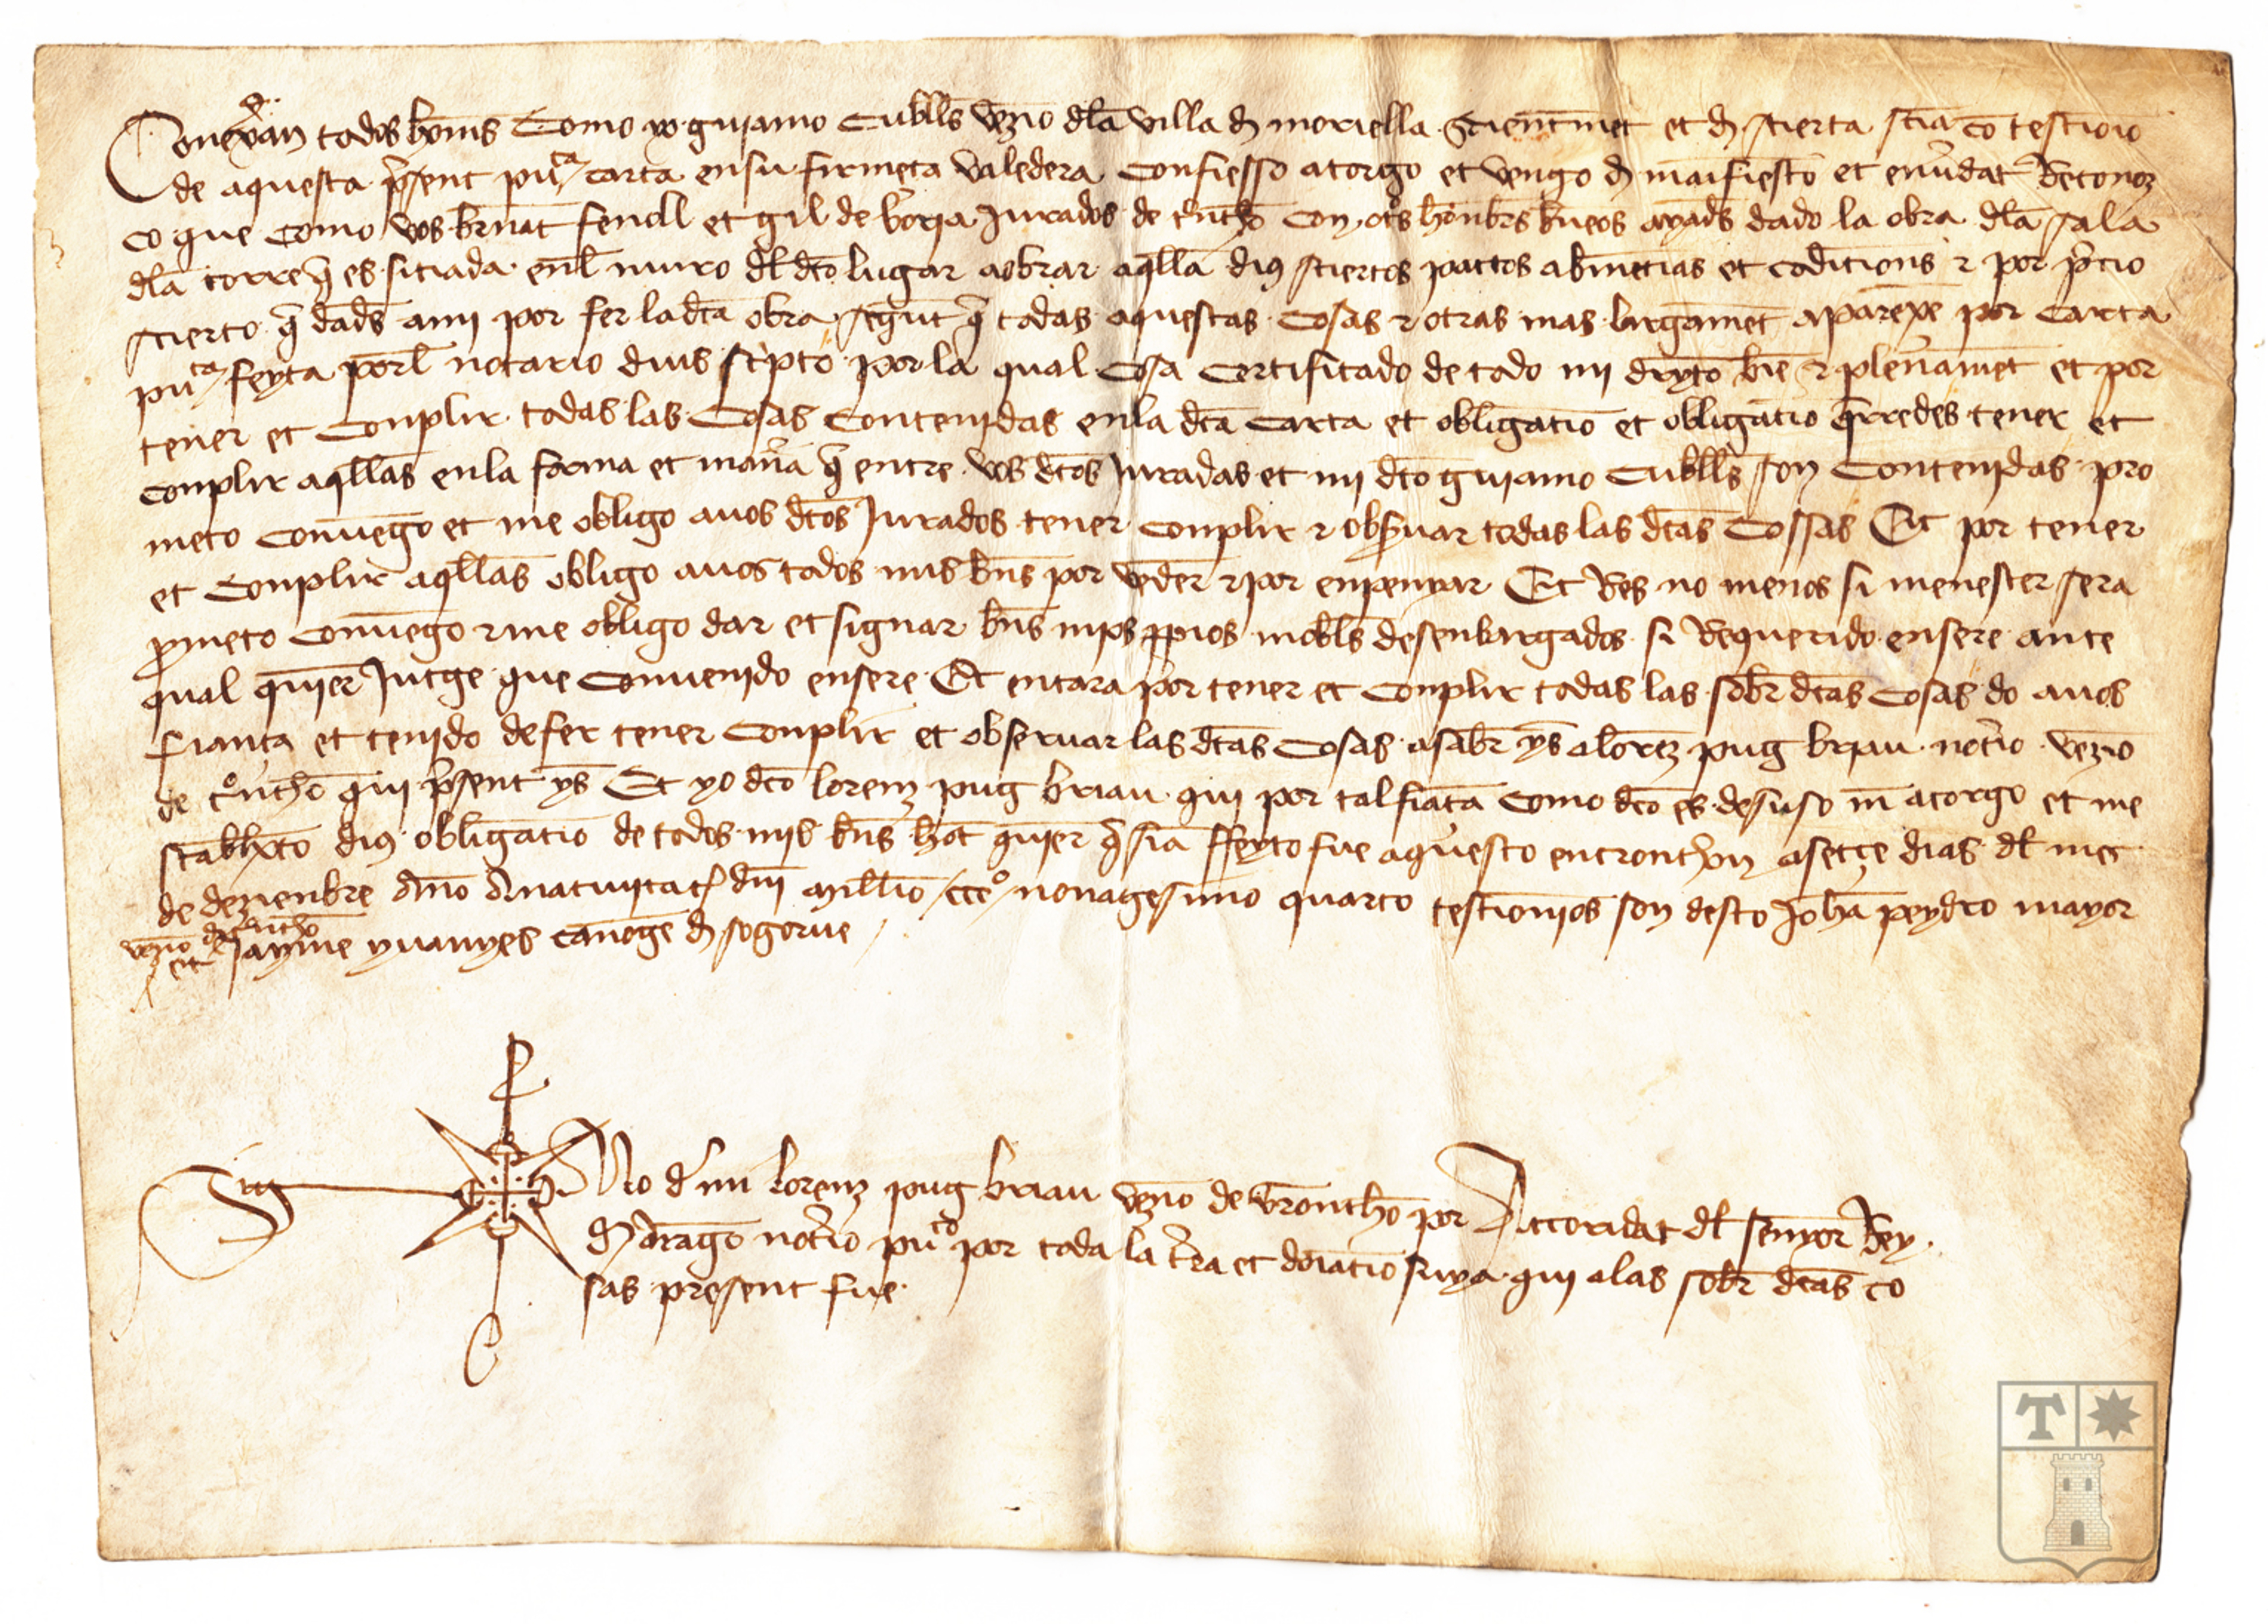 Conexan todos homs Como yo guiamo Cublls vezno dla villa d moriella scientmet et d scierta scia co testionio
de aquesta present puca carta en su firmeta valedera Confiesso atorgo et vengo d manifiesto et en vdat Reconoz
co que como vos brnat fenoll et gil de borja Jurados de tontho con otrs honbrs bueos ayads dado la obra dla sala
dla torre q es sitiada enl muro dl dto lugar a obrar aqlla dius sciertos pactos abinentias et coditions z por precio
scierto q dads a mi por fer la dta obra segut q todas aquestas cosas z otras mas largamet aparexe por carta
puca feyta porl notario dius scripto por la qual cosa certificado de todo mi dreyto bie z plenamet et por
tener et conplir todas las cosas contenidas en la dta carta et obligatio et obligatio qrredes tener et
conplir aqllas en la forma et mana q entre vos dtos Jurados et mi dto guiamo Cublls son contenidas pro
meto convengo et me obligo a vos dtos Jurados tener conplir z observar todas las dtas cossas Et por tener
et conplir aqllas obligo a vos todos mis bns por veder z por enpenyar Et Res no menos si menester sera
prometo convengo z me obligo dar et signar bns mios ppios mobls desenbargados si Requerido en sere ante
qual quier Jutge que convenido en sere Et encara por tener et conplir todas las sobr dtas cosas do a vos
fiança et tenido de fer tener conplir et observar las dtas cosas asabr ys a lorez pug briau notrio vezno
de tontho qui present ys Et yo dto lorenz pug briau qui por tal fiaça como dto es de suso m atorgo et me
stablxco dius obligatio de todos mis bns hot quier q sia ffeyto fue aquesto en tronthon a setçe dias dl mes
de dezienbre Ano A nativitat dni Millio ccco nonagesimo quarto testionios son desto Joha peydro mayor
vezno d tontho
et Jayme yuanyes canoge d sogorve
Sig no d mi lorenz pug briau vezno de trontho por Actoridat dl senyor Rey
d Arago notrio puco por toda la trra et doiatio suya qui a las sobr dtas co
sas present fue
T